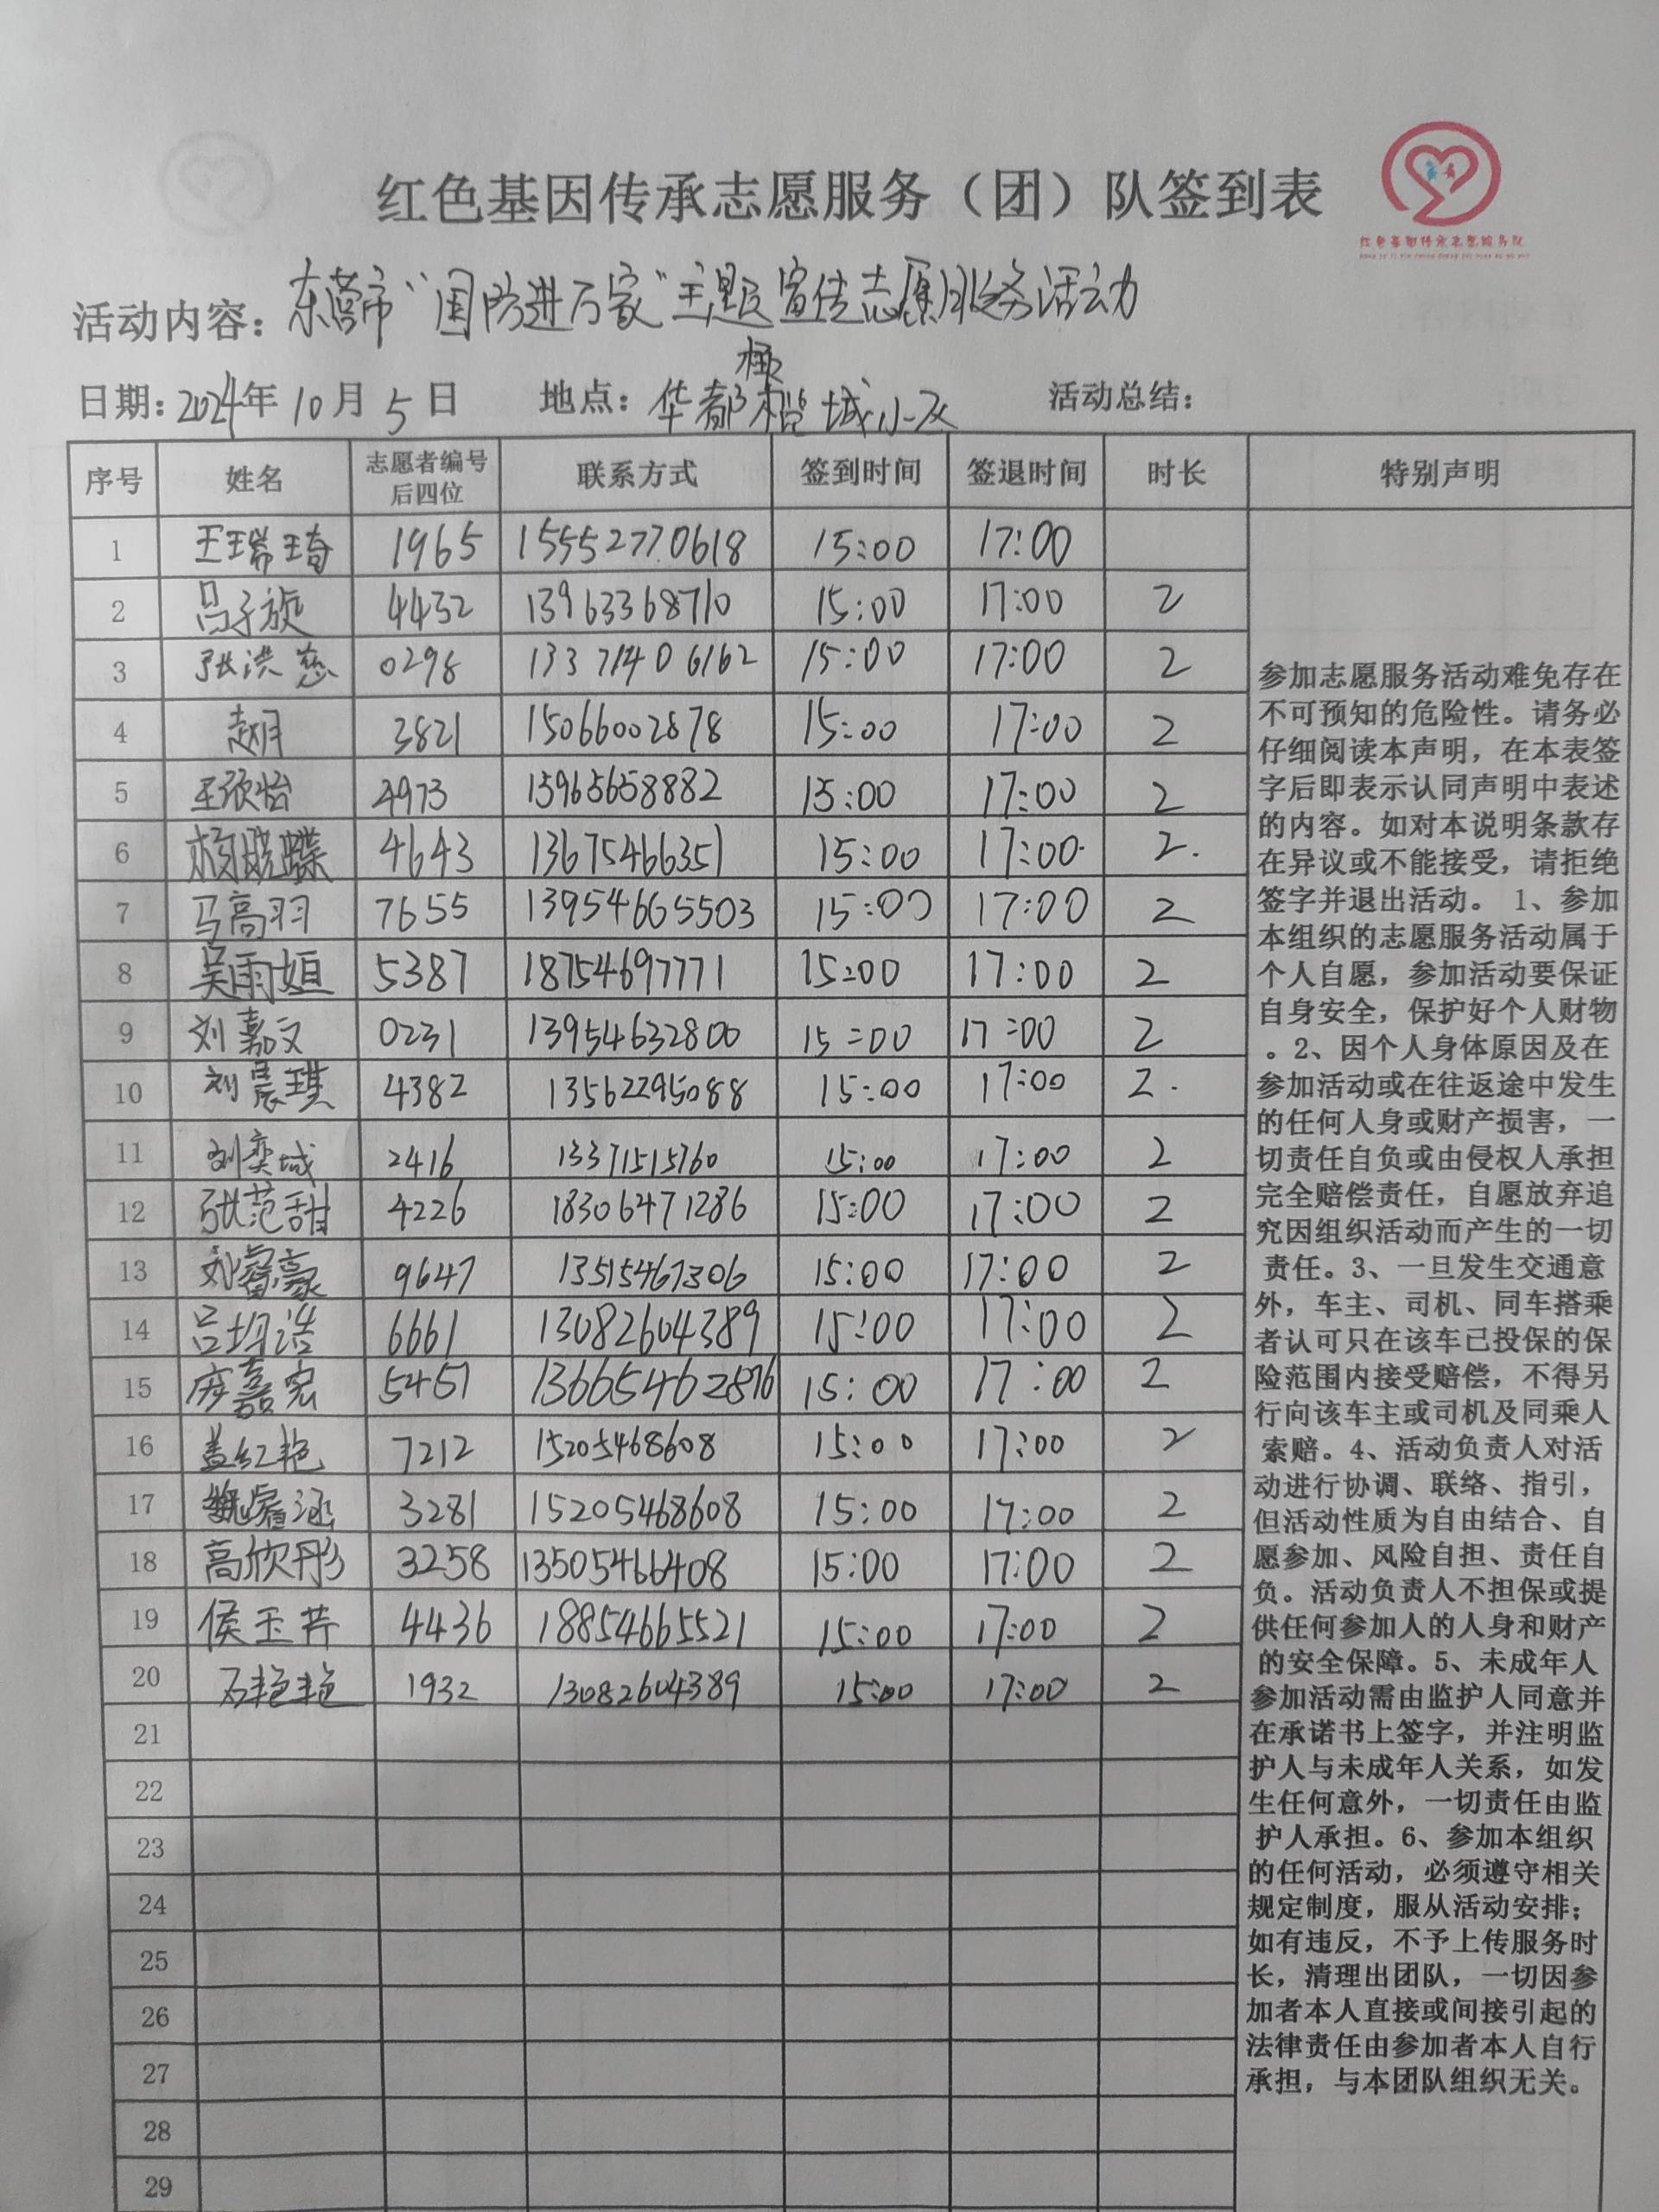 红色基因传承志愿服务（团）队签到表
红色基因传承志愿服务队
活动内容：东营市“国防进万家”主题宣传志愿服务活动
日期：2024年10月5日 地点：华都 城小区 活动总结：
序号 姓名 志愿者编号后四位 联系方式 签到时间 签退时间 时长 特别声明
1 王瑞琦 1965 15552770618 15:00 17:00
2 吕子旋 4432 13963368710 15:00 17:00 2
3 张洪慈 0298 13371406162 15:00 17:00 2
4 赵月 3821 15066002878 15:00 17:00 2
5 王欣怡 4973 15965658882 15:00 17:00 2
6 杨晓蝶 4643 13675466351 15:00 17:00 2.
7 马高羽 7655 13954665503 15:00 17:00 2
8 吴雨姮 5387 18754697771 15:00 17:00 2
9 刘嘉文 0231 13954632800 15:00 17:00 2
10 刘晨琪 4382 13562295088 15:00 17:00 2.
11 刘奕城 2416 13371515760 15:00 17:00 2
12 张范甜 4226 18306471286 15:00 17:00 2
13 刘睿豪 9647 13515467306 15:00 17:00 2
14 吕均浩 6661 13082604389 15:00 17:00 2
15 嘉宏 5451 13665462876 15:00 17:00 2
16 盖红艳 7212 15205468608 15:00 17:00 2
17 魏睿涵 3281 15205468608 15:00 17:00 2
18 高欣彤 3258 13505466408 15:00 17:00 2
19 侯玉芹 4436 18854665521 15:00 17:00 2
20 石艳艳 1932 13082604389 15:00 17:00 2
21
22
23
24
25
26
27
28
29
参加志愿服务活动难免存在
不可预知的危险性。请务必
仔细阅读本声明，在本表签
字后即表示认同声明中表述
的内容。如对本说明条款存
在异议或不能接受，请拒绝
签字并退出活动。 1、参加
本组织的志愿服务活动属于
个人自愿，参加活动要保证
自身安全，保护好个人财物
。2、因个人身体原因及在
参加活动或在往返途中发生
的任何人身或财产损害，一
切责任自负或由侵权人承担
完全赔偿责任，自愿放弃追
究因组织活动而产生的一切
责任。3、一旦发生交通意
外，车主、司机、同车搭乘
者认可只在该车已投保的保
险范围内接受赔偿，不得另
行向该车主或司机及同乘人
索赔。4、活动负责人对活
动进行协调、联络、指引，
但活动性质为自由结合、自
愿参加、风险自担、责任自
负。活动负责人不担保或提
供任何参加人的人身和财产
的安全保障。5、未成年人
参加活动需由监护人同意并
在承诺书上签字，并注明监
护人与未成年人关系，如发
生任何意外，一切责任由监
护人承担。6、参加本组织
的任何活动，必须遵守相关
规定制度，服从活动安排；
如有违反，不予上传服务时
长，清理出团队，一切因参
加者本人直接或间接引起的
法律责任由参加者本人自行
承担，与本团队组织无关。